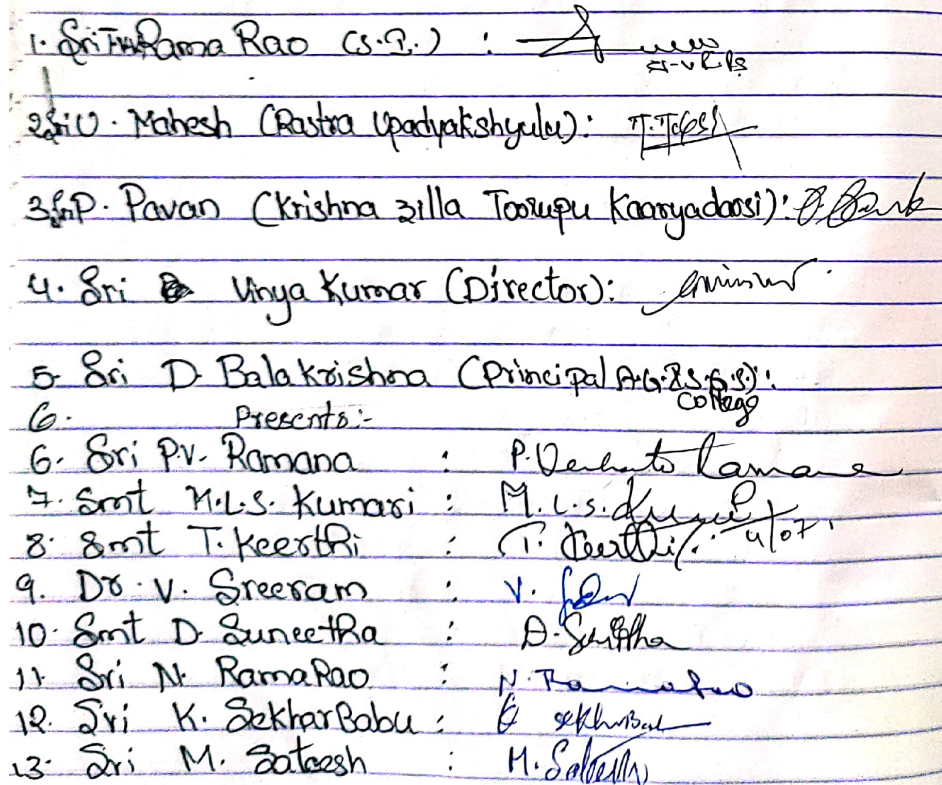 1. Sri T.V.V. Rama Rao (S.I.) :
2. Sri U. Mahesh (Rastra Upadyakshyulu):
3. Sri P. Pavan (Krishna zilla Toorupu Kaaryadarsi):
4. Sri Vinya Kumar (Director):
5. Sri D. Balakrishna (Principal A.G.&S.G.S.):
College
6. Presents:-
6. Sri P.V. Ramana : P. Venkata Ramana
7. Smt M.L.S. Kumari : M.L.S. Kumari 4/07
8. Smt T. Keerthi : T. Keerthi
9. Dr. V. Sreeram : V.
10. Smt D. Suneetha : D. Sunitha
11. Sri N. RamaRao : N. Ramarao
12. Sri K. SekharBabu : K sekharBabu
13. Sri M. Sateesh : M. Sateesh